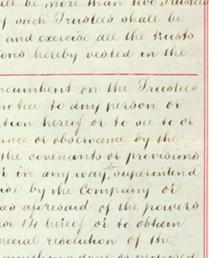 ll be more than two Trustees
of such Trustees shall be
and exercise all the trusts
ions hereby vested in the
cumbent on the Trustees
notice to any person or
tion hereof or to see to or
ance or observance by the
the covenants or provisions
or in any way superintend
ise by the Company or
as aforesaid of the powers
or 14 hereof or to obtain
pecial resolution of the
anything done or proposed